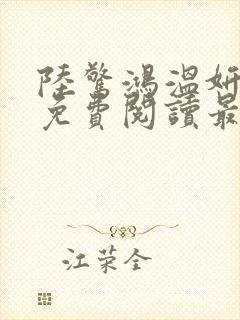 陸驚鴻溫妍
免費閱讀最
江荣全